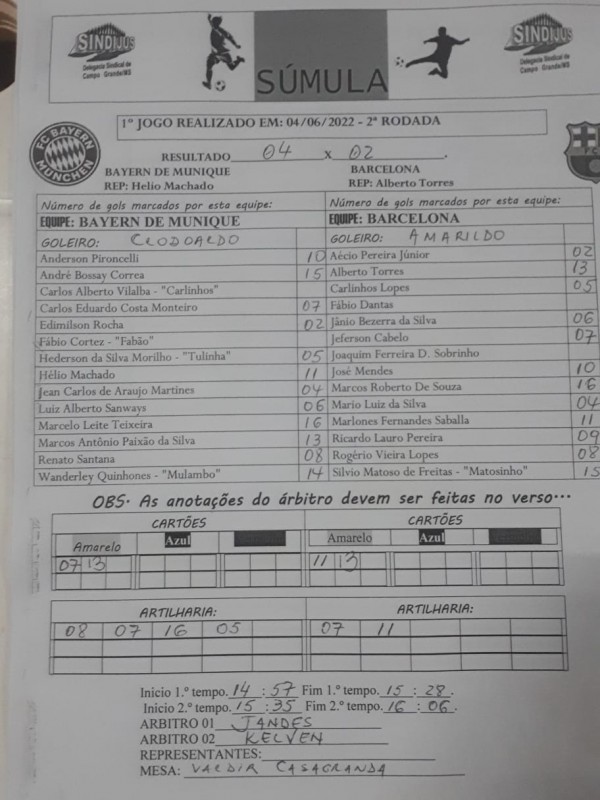 SINDIJUS
Delegacia Sindical de
Campo Grande/MS
SÚMULA
SINDIJUS
Delegacia Sindical de
Campo Grande/MS
1º JOGO REALIZADO EM: 04/06/2022 - 2ª RODADA
FC BAYERN
MÜNCHEN
RESULTADO 04 x 02
BAYERN DE MUNIQUE BARCELONA
REP: Helio Machado REP: Alberto Torres
Número de gols marcados por esta equipe: Número de gols marcados por esta equipe:
EQUIPE: BAYERN DE MUNIQUE EQUIPE: BARCELONA
GOLEIRO: CLODOALDO GOLEIRO: AMARILDO
Anderson Pironcelli 10 Aécio Pereira Júnior 02
André Bossay Correa 15 Alberto Torres 13
Carlos Alberto Vilalba - "Carlinhos" Carlinhos Lopes 05
Carlos Eduardo Costa Monteiro 07 Fábio Dantas
Edimilson Rocha 02 Jânio Bezerra da Silva 06
Fábio Cortez - "Fabão" Jeferson Cabelo 07
Hederson da Silva Morilho - "Tulinha" 05 Joaquim Ferreira D. Sobrinho
Hélio Machado 11 José Mendes 10
Jean Carlos de Araujo Martines 04 Marcos Roberto De Souza 16
Luiz Alberto Sanways 06 Mario Luiz da Silva 04
Marcelo Leite Teixeira 16 Marlones Fernandes Saballa 11
Marcos Antônio Paixão da Silva 13 Ricardo Lauro Pereira 09
Renato Santana 08 Rogério Vieira Lopes 08
Wanderley Quinhones - "Mulambo" 14 Silvio Matoso de Freitas - "Matosinho" 15
OBS. As anotações do árbitro devem ser feitas no verso...
CARTÕES CARTÕES
Amarelo Azul Amarelo Azul
07 13 11 13
ARTILHARIA: ARTILHARIA:
08 07 16 05 07 11
Inicio 1.º tempo. 14 : 57 Fim 1.º tempo. 15 : 28.
Inicio 2.º tempo. 15 : 35 Fim 2.º tempo. 16 : 06.
ARBITRO 01 JANDES
ARBITRO 02 KELVEN
REPRESENTANTES:
MESA: VALDIR CASAGRANDA